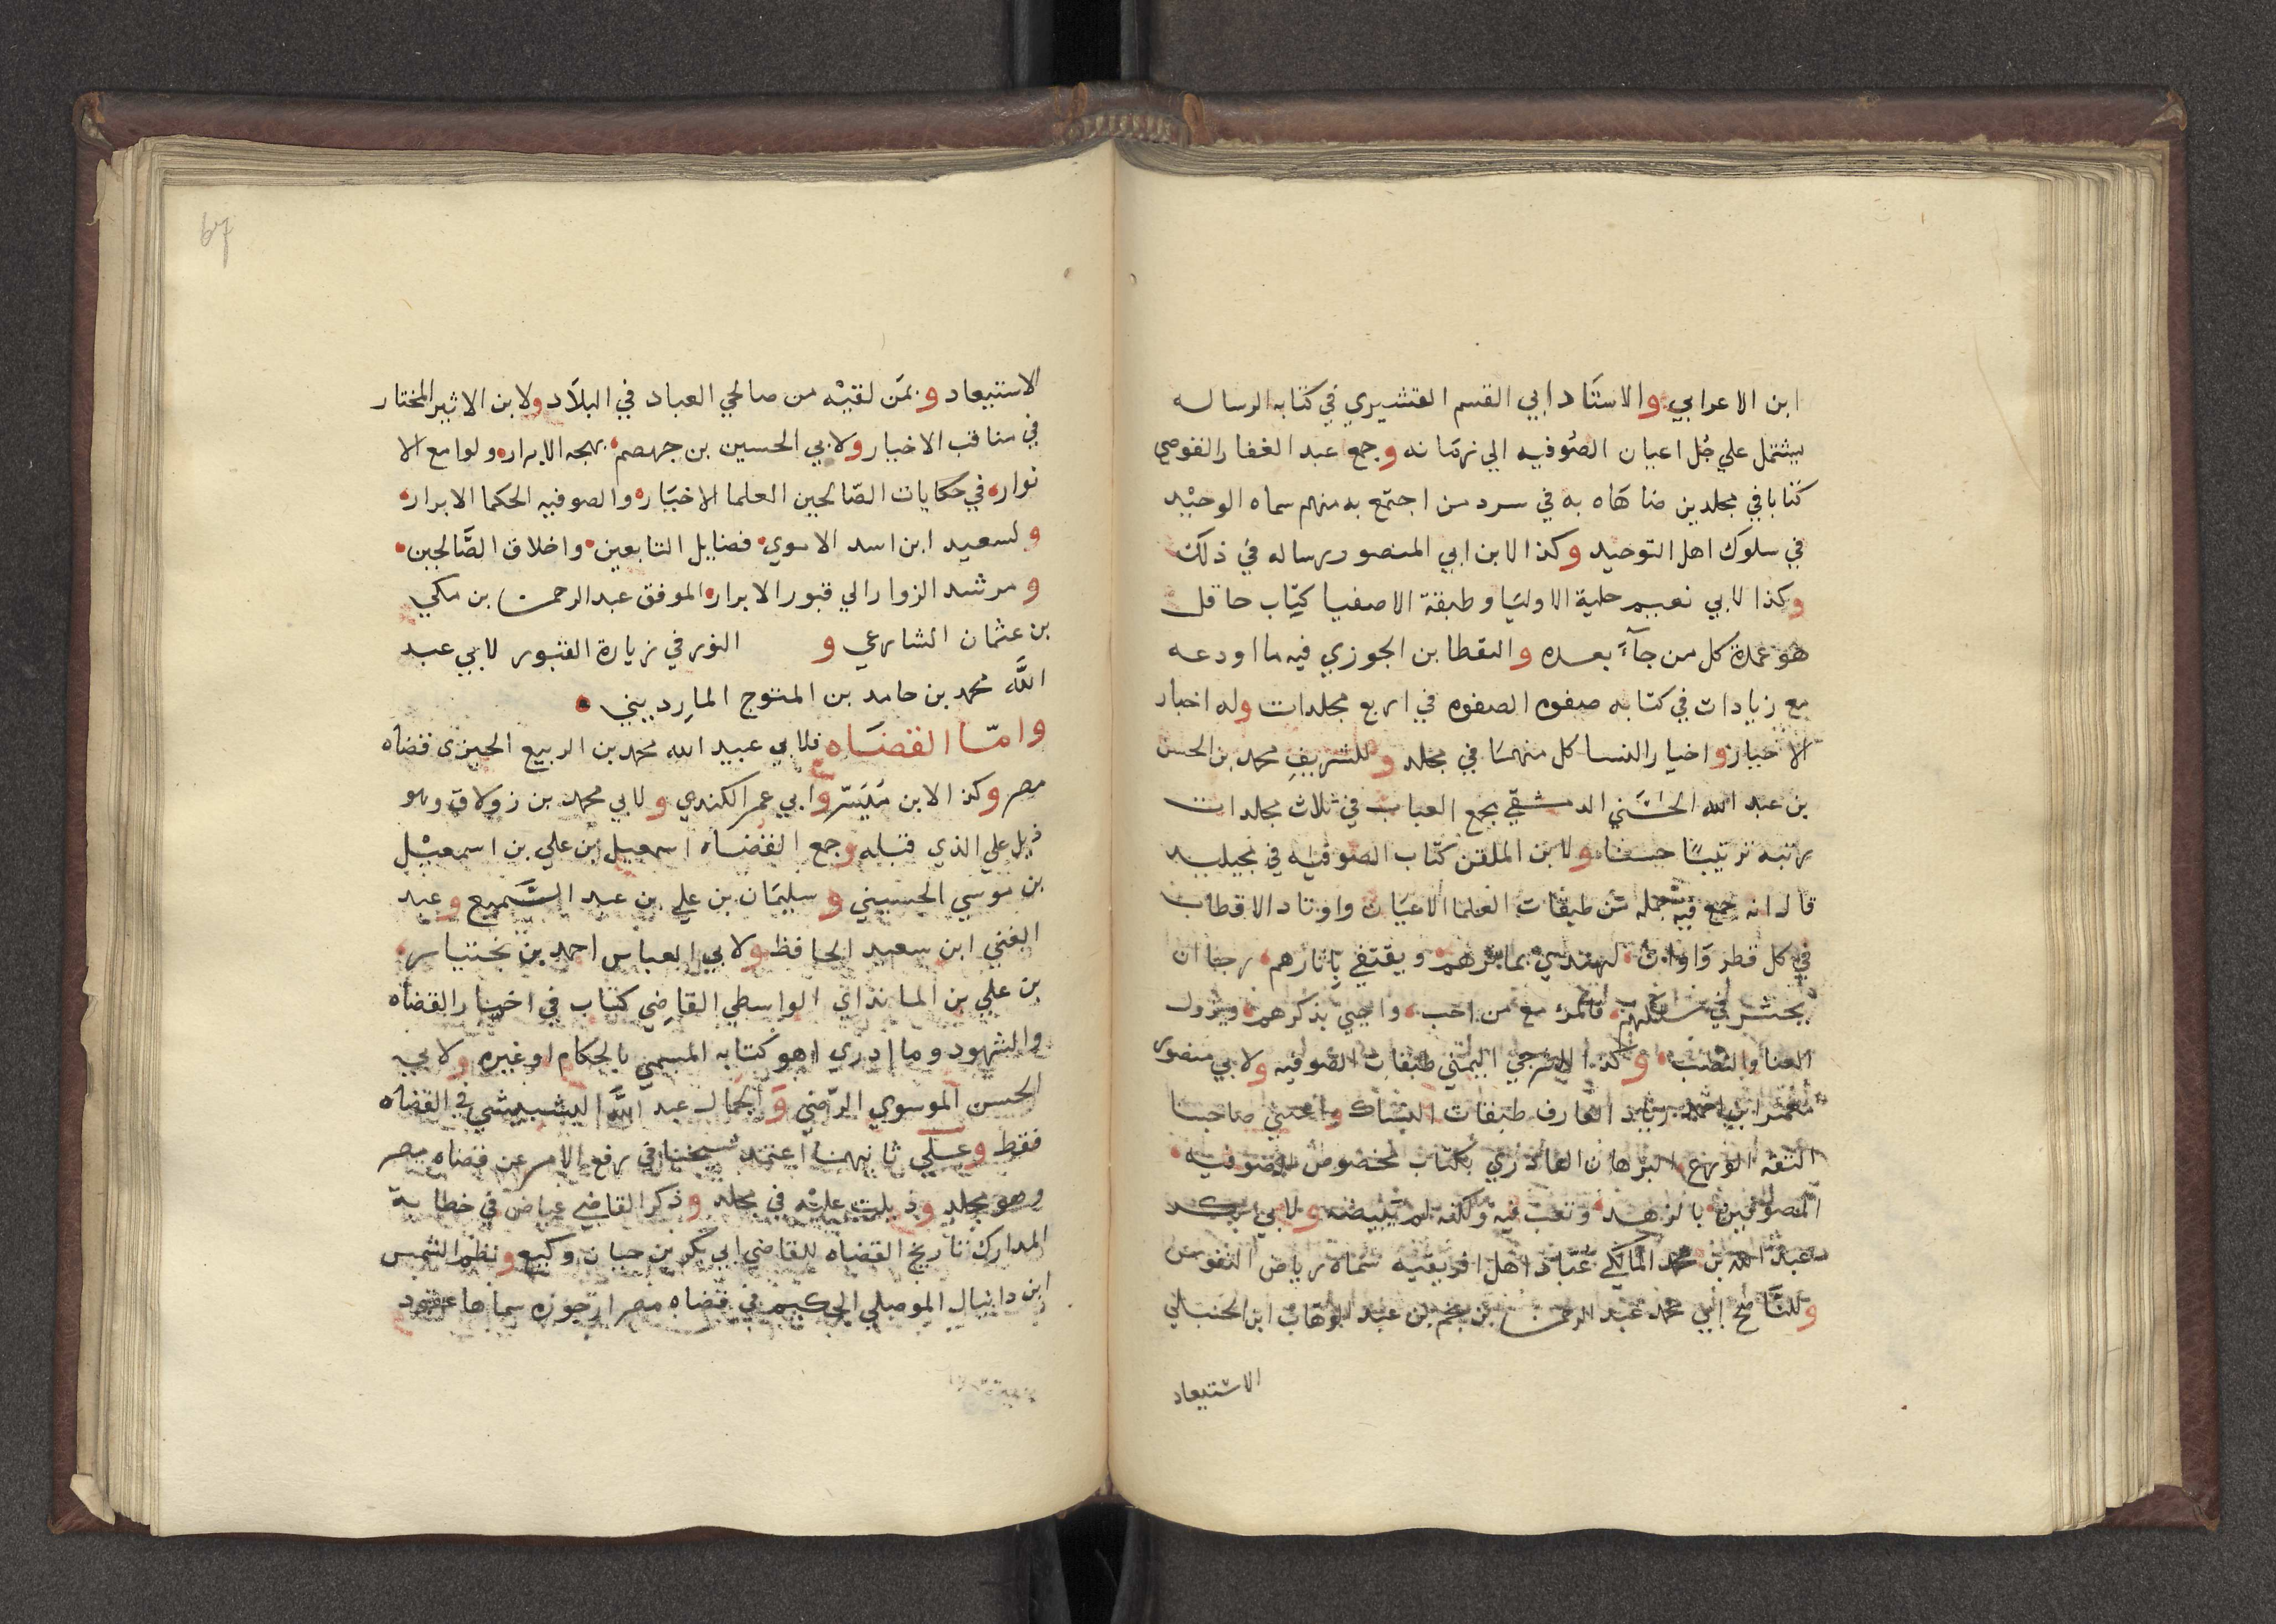 ابن الاعرابي والاستاد ابي القسم القشيري في كتابه الرساله
يشتمل علي جُل اعيان الصُوفيه الي زمَانه وجمع عبد الغفار القوصي
كتابا في مجلدين ضاهَاه به في سرد من اجتمع به منهم سماه الوحيْد
في سلوك اهل التوحيد وكذا لابن ابي المنصور رساله في ذلك
وكذا لابي نعيم حلية الاوليَا وطبقة الاصفيا كتاب حافل
هو عمدة كل من جآءَ بعده والتقط ابن الجوزي فيه ما اودعه
مع زيادات في كتابه صفوه الصفوه في اربع مجلدات وله اخبار
الاخيار واخبار النسا كل منهمَا في مجلد وللشريفِ محمد بن الحسن
بن عبد الله الحسَني الدمشقي مجمع العباب في ثلاث مجلدات
رتبه ترتيبًا حسنا ولابن الملقن كتاب الصوفيه في مجيليد
قال انه جمع فيه جمله من طبقات العلما الاعيَان واوتاد الاقطاب
في كل قطر وَاوان ليهتدي بماثرهم ويقتفي باثارهم رجا ان
يحشر في سلكهم فالمرء مع من احب واحيي بذكرهم ويزول
العنا والنصب وكذا للشرجي اليمني طبقات الصوفيه ولابي منصور
معمر ابن احمد بن زياد العارف طبقات النساك واعتني صاحبنا
الثقة الورع البرهان القادري بكتاب مخصوص للصوفيه
المصوفين بالزهد وتعب فيه ولكنه لم يبيضه ولابي بكر
عبد الله بن محمد المالكي عُبّاد اهل افريقيه سَماه رياض النفوس
وللنَّاصح ابي محمد عبد الرحمن بن نجم بن عبد الوهاب ابن الحنبلي
الاستيعاد
67
الاستيعاد وبمَن لقيْه من صالحي العباد في البلاَد ولابن الاثير المختار
في مناقب الاخيار ولابي الحسين بن جهضم بهجه الابرار ولوامع الا
نوار في حكايات الصّالحين العلما الاخيَار والصوفيه الحكما الابرار
ولسعيد ابن اسد الاموي فضايل التابعين واخلاق الصَّالحين
ومرشد الزوار الي قبور الابرار الموفق عبد الرحمن بن مكي
بن عثمان الشارعي و النور في زيارة القبور لابي عبد
اللَّه محمد بن حامد بن المتوج المارِديني
وامّا القضَاه فلابي عبيد الله محمد بن الربيع الجيزى قضاه
مصر وكذا لابن مُيَسّر وابي عمر الكندي ولابي محمد بن زولاق وهو
ذيل علي الذي قبله وجمع القضاه اسمعيل بن علي بن اسمعيْل
بن موسي الحسيني وسليمَان بن علي بن عبد السَّميع وعبد
الغني ابن سعيد الحافظ ولابي العباس احمد بن بختيار
بن علي بن الماندَاي الواسطي القاضِي كتاب في اخبار القضاه
والشهود وما ادري اهو كتابه المسمي بالحكام او غيره ولابي
الحسن الموسوي الرّضي وَالجمال عبد اللَّه البشبيشي في القضاه
فقط وعلي ثانيهما اعتمد شيخنا في رفع الاصر عن قضاه مصر
وهو مجلد وذيلت عليْه في مجلد وذكر القاضي عياض في خطابة
المدارك تاريخ القضاه للقاضي ابي بكر بن حيان وكيع ونظم الشمس
ابن دانيال الموصلي الحكيم في قضاه مصر ارجوزه سماها عقود